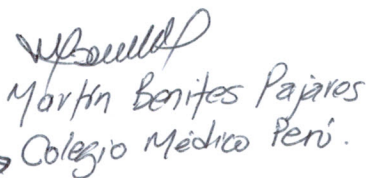 Martín Benites Pajares
Colegio Médico Perú.